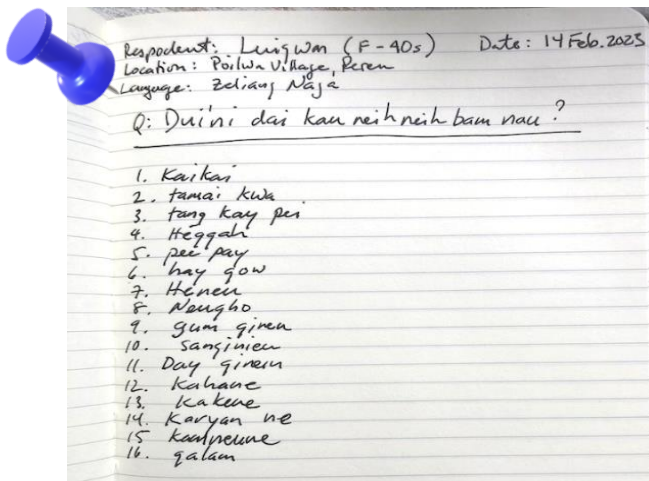 Respodent: Luigwm (F-40s) Date: 14 Feb. 2023
Location: Poilwa Village, Peren
Language: Zeliang Naga
Q: Dui'ni dai kau neih neih bam nau?
1. Kaikai
2. tamai kwa
3. tang kay pei
4. Heggah
5. pei pay
6. hay gow
7. Heneu
8. Neugho
9. gum gineu
10. Sanginieu
11. Day ginein
12. Kahane
13. Kakene
14. Karyan ne
15 
16. galam